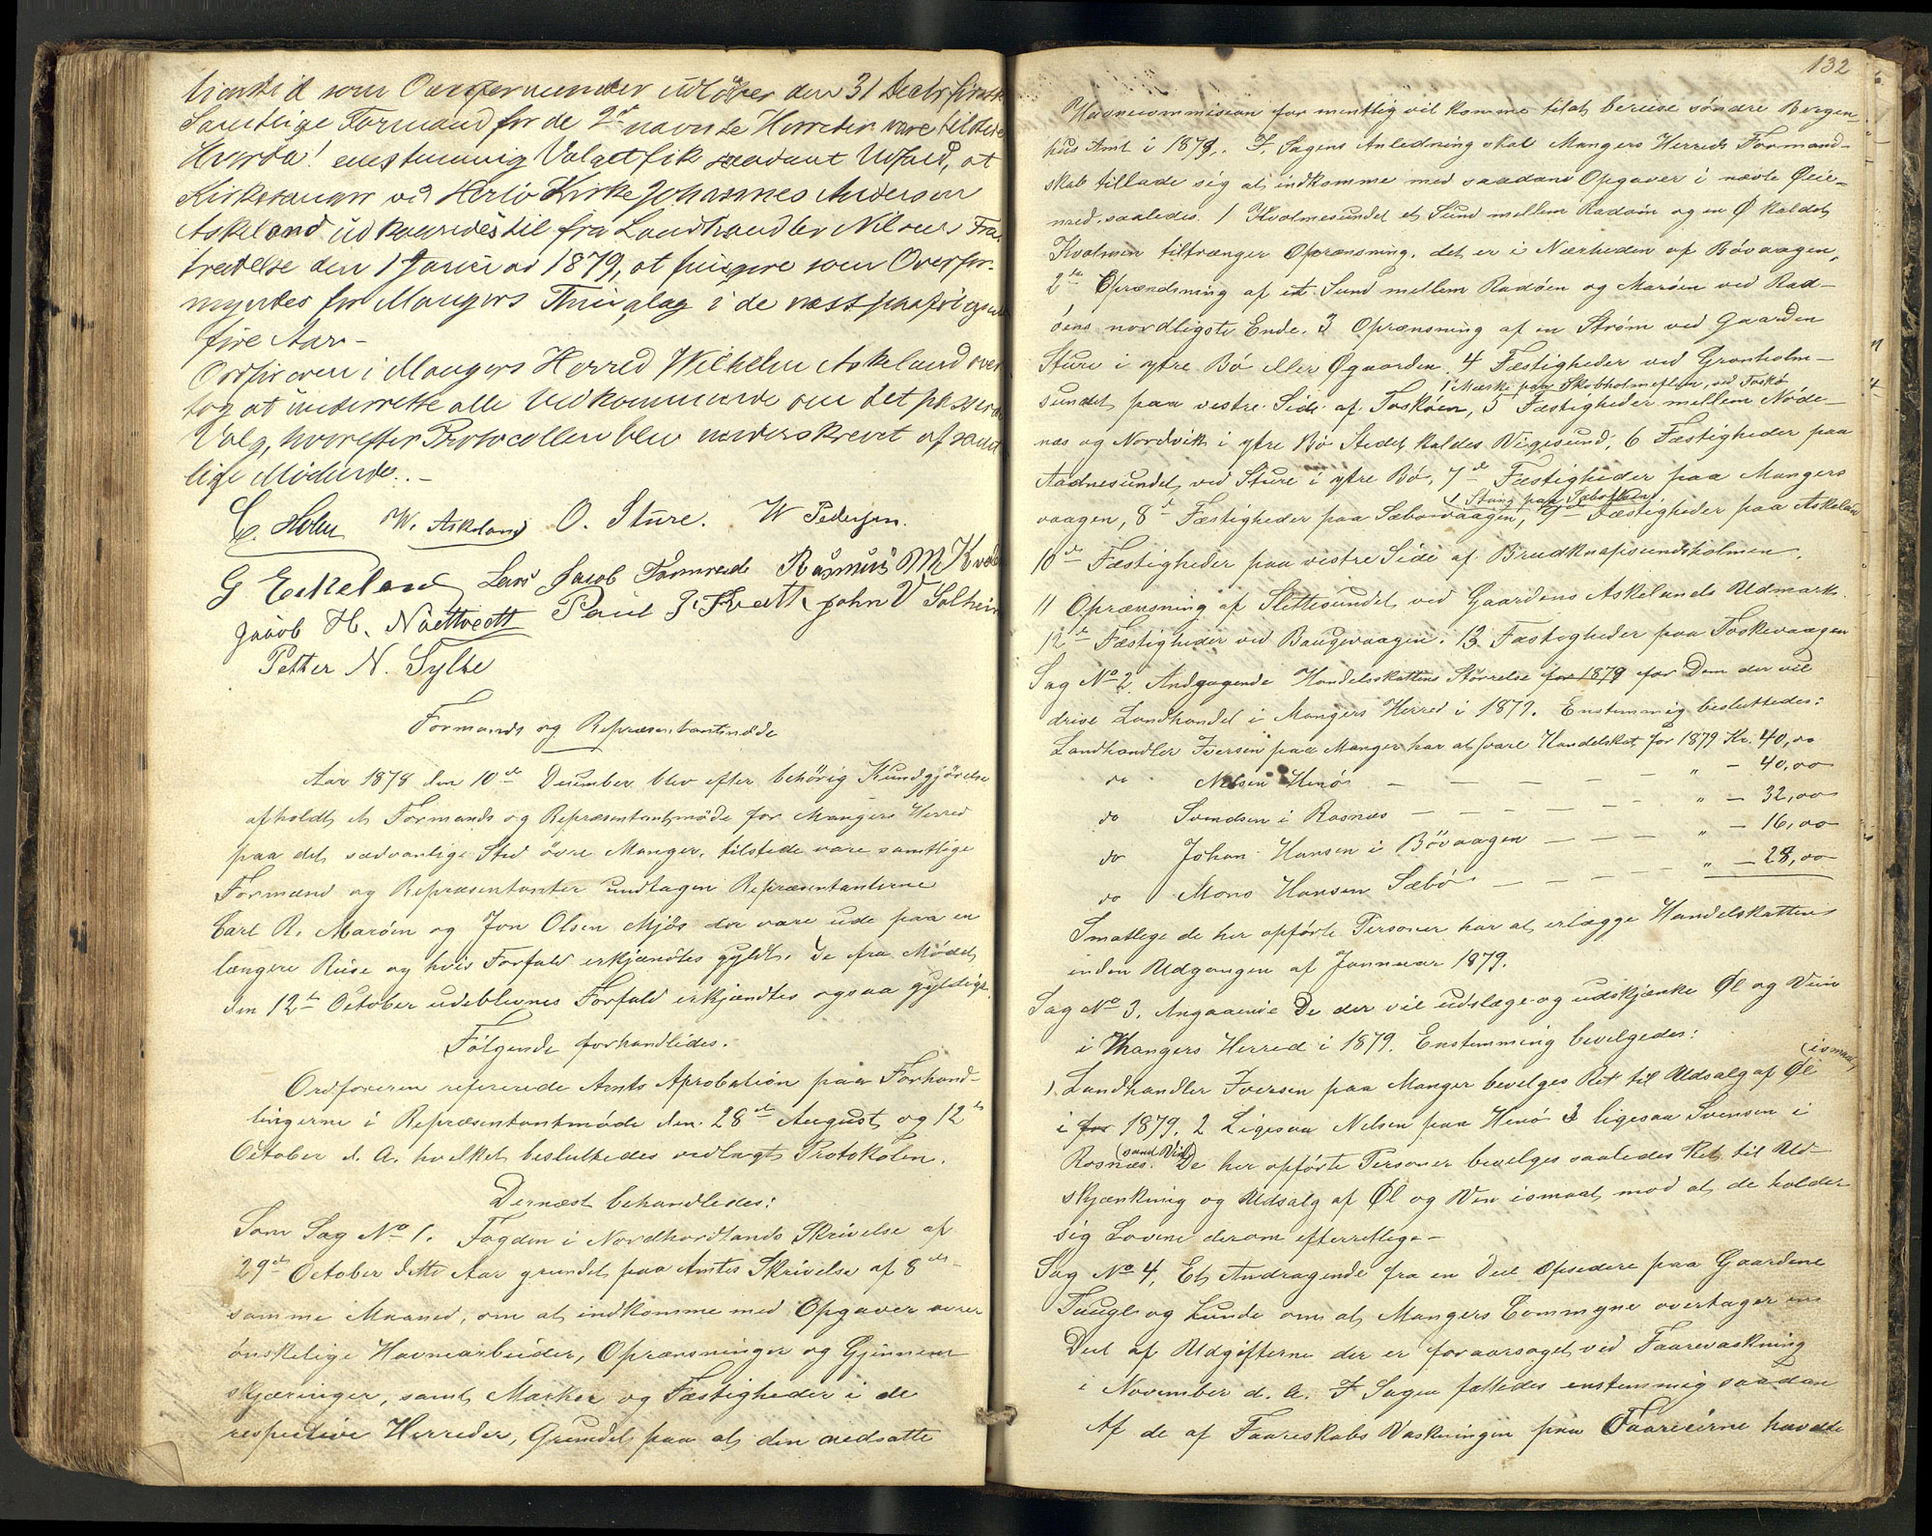 tienstid som Overformynder udløber den 31 Decbr førstk
Samtlige Formænd for de 2de nævnte Herreder vare tilstede
Hvorda! enstemmig Valget fik saadant Udfald, at
Kirkesanger ved Herlø Kirke Johannes Anderson
Askeland udkaaredes til fra Landhandler Nilsens Fra
trædelse den 1 Januar 1879, at fungere som Overfor-
mynder for Mangers Thinglag i de næst paafølgende
fire Aar-
Ordføreren i Mangers Herred Wilhelm Askeland over
tog at underrette alle Vedkommende om det passerede
Valg, hvorefter Protocollen blev underskrevet af samt
lige Mødende. -
C. Holm W. Askeland O. Sture. W Pedersen.
G Eikeland Lars Jacob Tormrade Rasmus M Kvalen
Jacob H. Nættvedt Paul J. Tvedt John V Solheim
Petter N. Sylte
Formands og Repræsentantmøde
Aar 1878 den 10de Desember blev efter behörig Kundgjörelse
afholdt et Formands og Repræsentantmøde for Mangers Herred
paa det sædvanlige Sted övre Manger, tilstede vare samtlige
Formænd og Repræsentanter undtagen Repræsentanterne
Carl R. Marøen og Jon Olsen Mjøs der vare ude paa en
længere Reise og hvis Forfald erkjændtes gyldt. De fra Mødet
den 12te October udeblevnes Forfald erkjændtes ogsaa gyldigt.
Følgende forhandledes.
Ordføreren refererede Amts Aprobation paa Forhand-
lingerne i Repræsentantmøde den 28de August og 12te
October d. A. hvilket besluttedes vedlagt Protokolen.
Dernæst behandledes:
Som Sag No 1. Fogden i Nordhordlands Skrivelse af
29de October dette Aar grundet paa Amtes Skrivelse af 8des
samme Maaned, om at indkomme med Opgaver over
önskelige Havnearbeider, Oprænsninger og Gjennem
skjæringer, samt Mærker og Fæstigheder i de
respective Herreder, Grundet paa at den nedsatte
132
Havnecommission formentlig vil komme til at bereise söndre Bergen-
hus Amt i 1879. I Sagens Anledning skal Mangers Herreds Formand-
skab tillade sig at indkomme med saadane Opgaver i nævte Øie-
med, saaledes. 1 Kvolmesundet et Sund mellem Radøin og en Ø kaldet
Kvolmen tiltrænger Oprænsning, det er i Nærheden af Bövaagen,
2de Oprændsning af et Sund mellem Radøen og Marøen ved Rad-
öens nordligste Ende. 3 Oprænsning af en Strøm ved Gaarden
Sture i ytre Bö eller Øgaarden. 4 Fæstigheder ved Granholm-
1 Mærke paa Skobholmeflun, ved Toskø
sundet paa vestre Side af Toskøen, 5 Fæstigheder mellem Nöde-
næs og Nordvik i ytre Bö Stedet kaldes Vigesund, 6 Fæstigheder paa
Aadnesundet ved Sture i ytre Bö, 7de Fæstigheder paa Mangers
1 Stang paa Sæboskjær
vaagen, 8de Fæstigheder paa Sæbovaagen, 9de Fæstigheder paa Askeland
10de Fæstigheder paa vestre Side af Brudknapsundsholmen.
11 Oprænsning af Slettesundet ved Gaardens Askelands Udmark.
12te Fæstigheder ved Baugevaagen. 13 Fæstigheder paa Toskevaagen
Sag No 2. Andgagende Handelsskattens Störrelse for 1879 for Dem der vil
drive Landhandel i Mangers Herred i 1879. Enstemmig besluttedes:
Landhandler Iversen paa Manger har at svare Handelskat for 1879 Kr. 40,00
do Nilsen Henö - - - - - " - 40,00
do Svendsen i Rosnæs - - - - - " - 32,00
do Johan Hansen i Bövaagen - - - " - 16,00
do Mons Hansen Sæbö - - - - " - 28,00
Smatlege de her opförte Personer har at erlægge Handelskatten
inden Udgangen af Jannuar 1879.
Sag No 3. Angaaende De der vil udslæge og udskjænke Øl og Vin
i Mangers Herred i 1879. Enstemming bevelgedes:
(ismaat
1 Landhandler Iversen paa Manger bevelges Ret til Udsalg af Øl
i for 1879. 2 Ligesaa Nelsen paa Henö 3 ligesaa Svensen i
(samt Vin)
Rosnæs. De her opförte Personer bevelges saaledes Ret til Ud-
skjænkning og Udsalg af Øl og Vin ismaat mod at de holder
sig Lovene derom efterrettlige-
Sag No 4. Et Andragende fra en Deel Opsedere paa Gaardene
Taugle og Lunde om at Mangers Commyne overtager en
Deel af Udgifterne der er foraarsaget ved Faarevaskning
i November d. A. I Sagen fattedes enstemmig saadan
Af de af Faareskabs Vaskningen paa Faareeierne havde